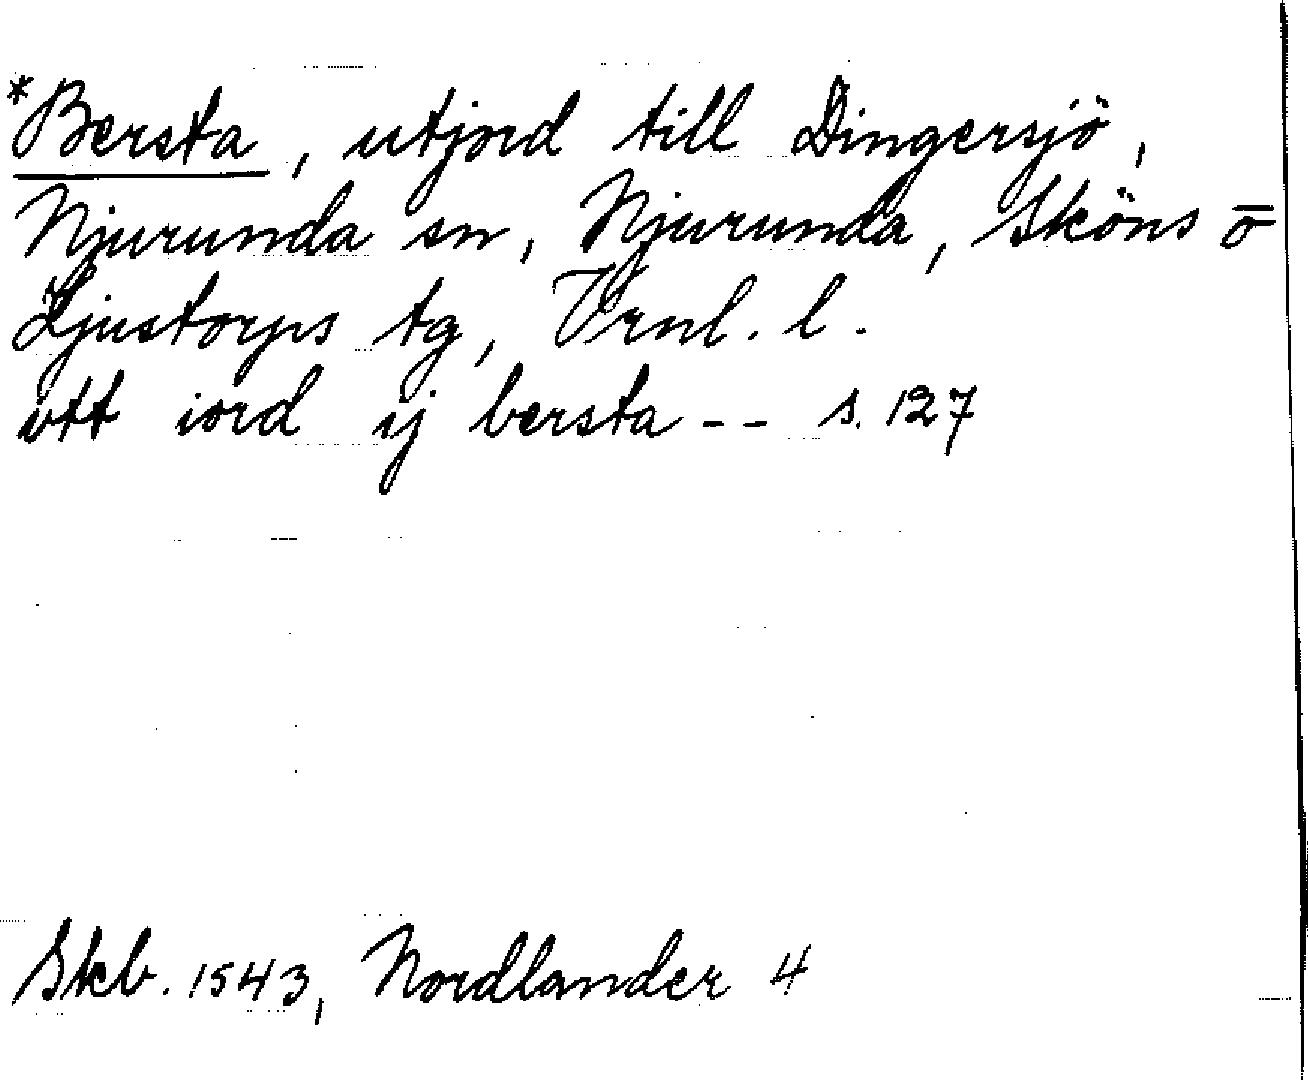 *Bersta, utjord till Dingersjö,
Njurunda sn, Njurunda, Sköns o̅
Ljustorps tg, Vrnl. l.
vtt iord ij bersta -- s. 127
Skb. 1543, Nordlander 4